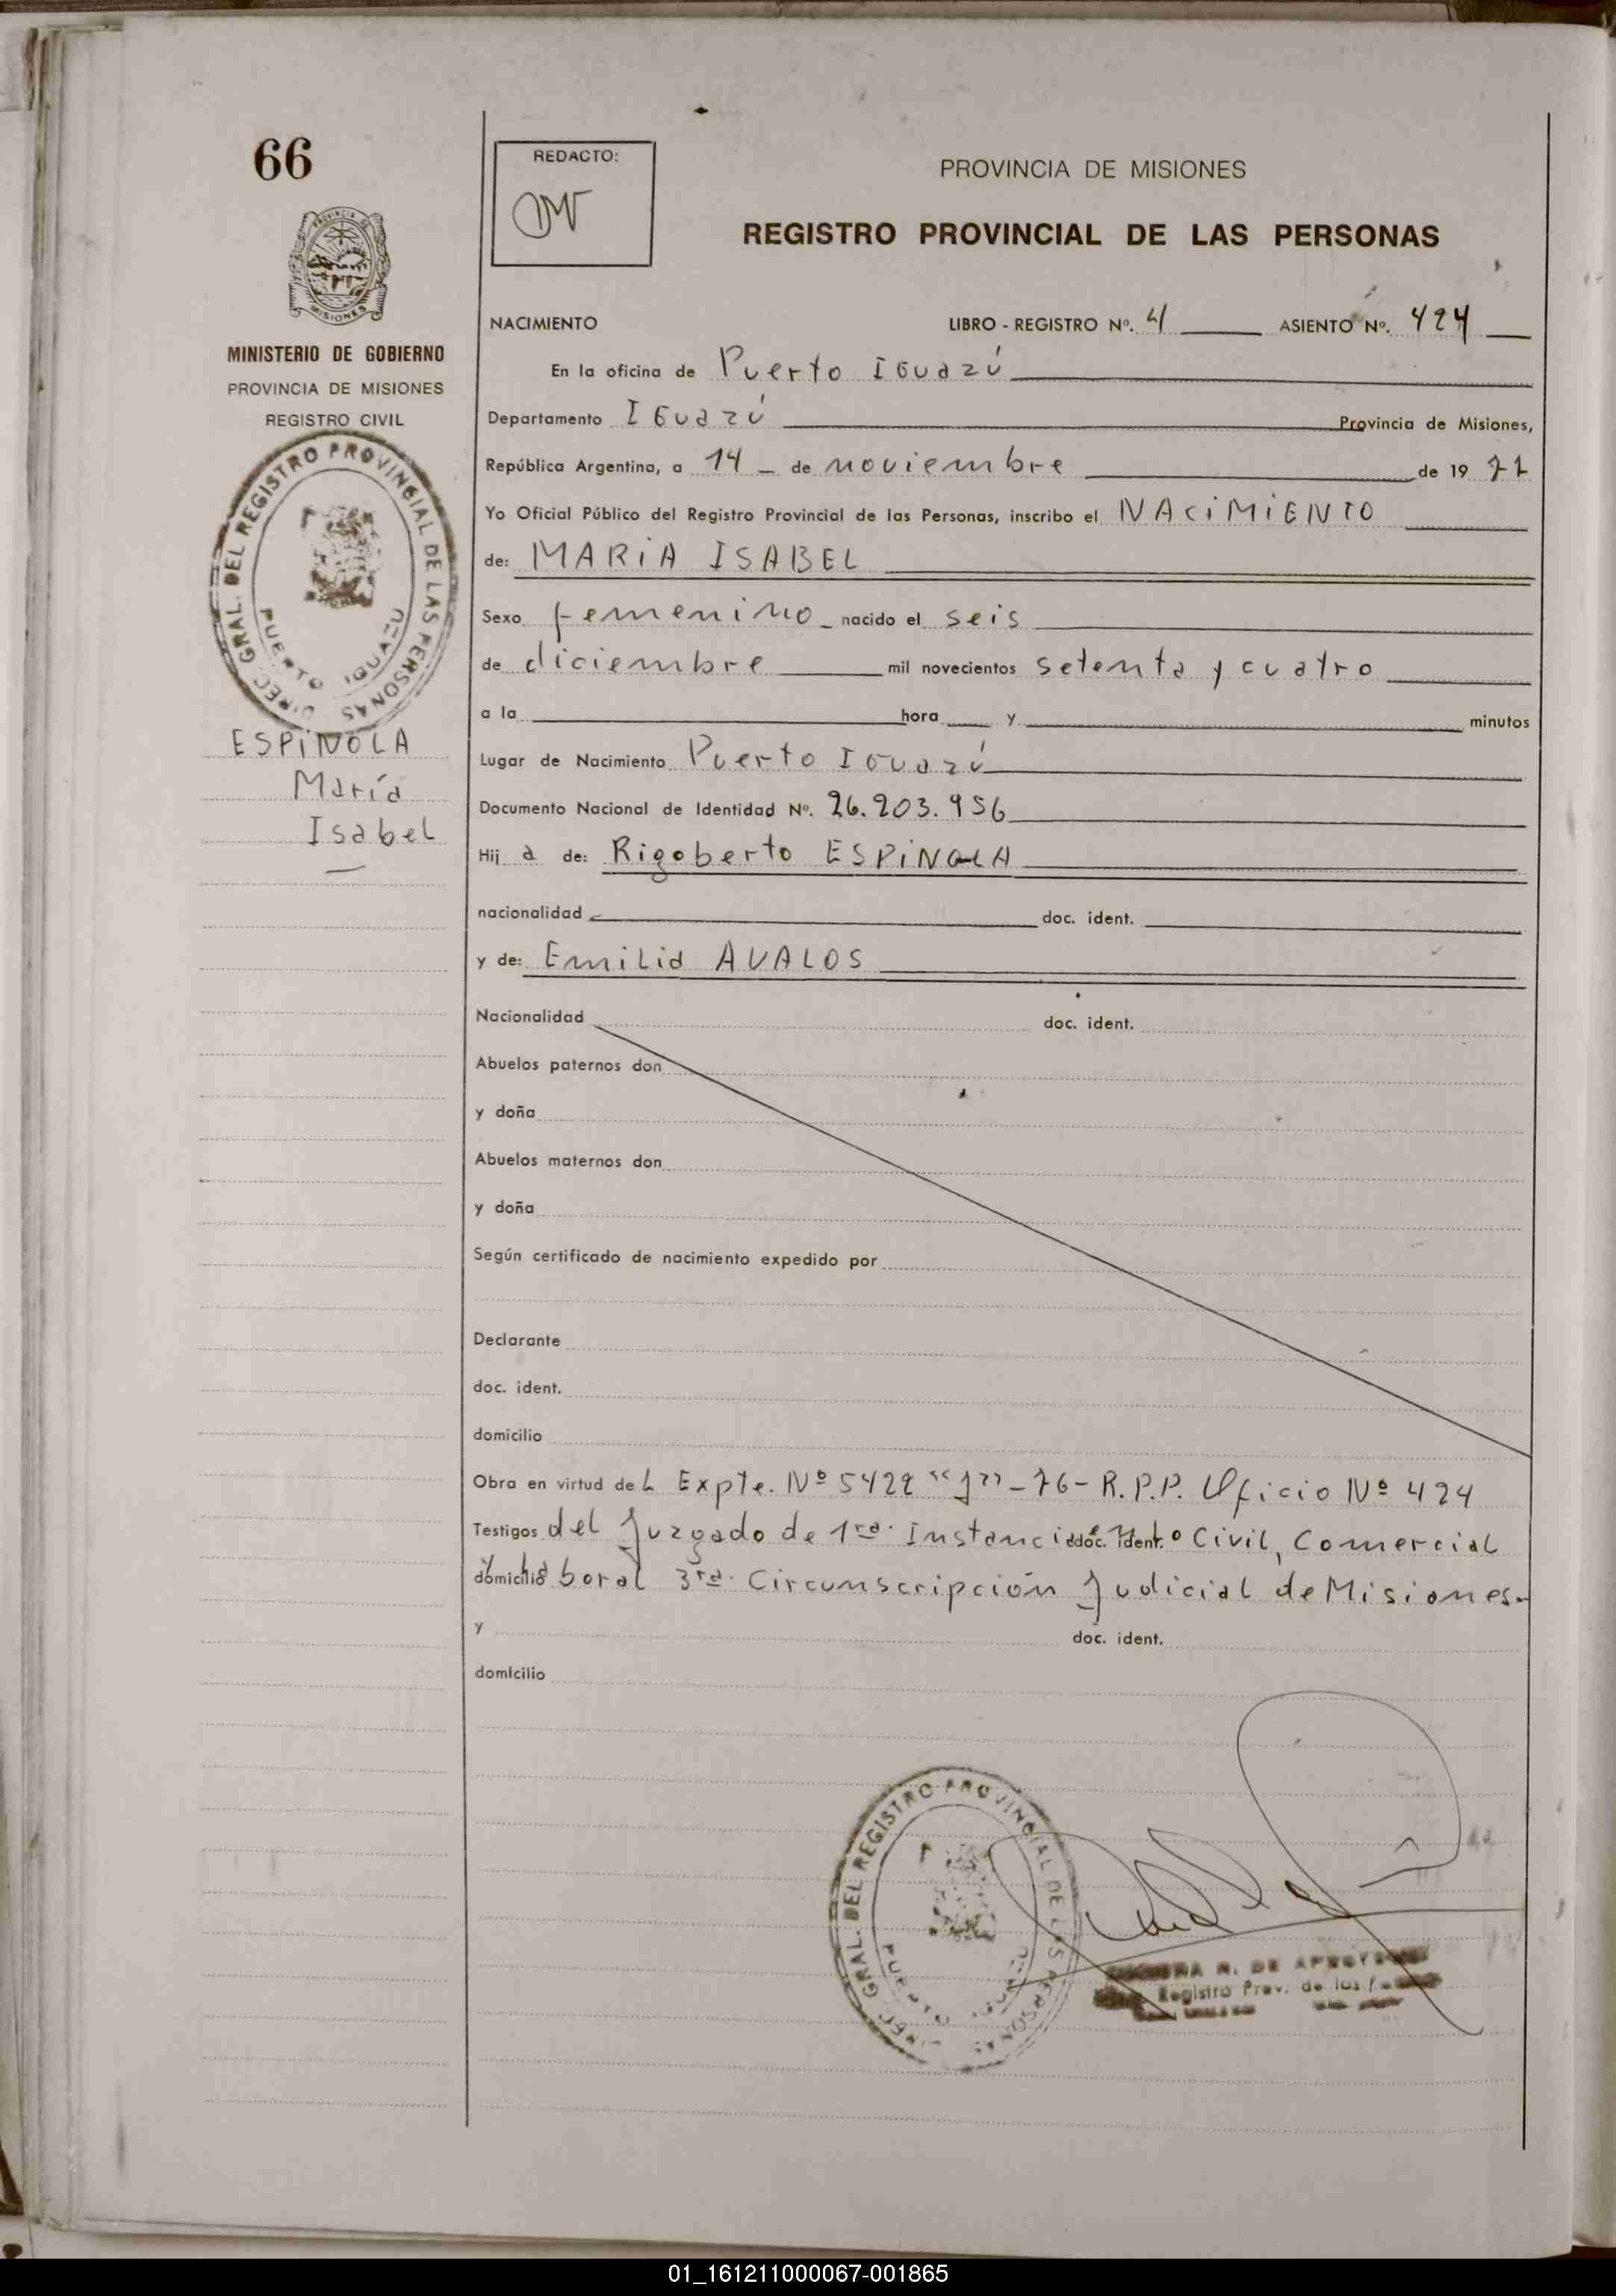 66
REDACTO:
PROVINCIA DE MISIONES
REGISTRO PROVINCIAL DE LAS PERSONAS
PROVINCIA DE
MISIONES
MINISTERIO DE GOBIERNO
PROVINCIA DE MISIONES
REGISTRO CIVIL
DIREC. GRAL. DEL REGISTRO PROVINCIAL DE LAS PERSONAS
PUERTO IGUAZU
ESPINOLA
María
Isabel
NACIMIENTO LIBRO - REGISTRO Nº. 4 ASIENTO Nº. 424
En la oficina de Puerto IGuazú
Departamento IGuazú Provincia de Misiones,
República Argentina, a 14 - de noviembre de 19 77
Yo Oficial Público del Registro Provincial de las Personas, inscribo el NACiMiENTO
de: MARiA ISABEL
Sexo femenino - nacido el seis
de diciembre mil novecientos setenta y cuatro
a la hora y minutos
Lugar de Nacimiento Puerto IGuazú
Documento Nacional de Identidad Nº. 26.203.956
Hij a de: Rigoberto ESPiNOLA
nacionalidad doc. ident.
y de: Emilia AVALOS
Nacionalidad doc. ident.
Abuelos paternos don
y doña
Abuelos maternos don
y doña
Según certificado de nacimiento expedido por
Declarante
doc. ident.
domicilio
Obra en virtud deL Expte. Nº 5422 "J"-76- R.P.P. Oficio Nº 424
Testigos del Juzgado de 1ra. Instancia doc. ident. Civil, Comercial
domicilio y Laboral 3ra. Circunscripción Judicial de Misiones.-
y doc. ident.
domicilio
DIREC. GRAL. DEL REGISTRO PROVINCIAL DE LAS PERSONAS
PUERTO IGUAZU
Registro Prov. de las
01_161211000067-001865